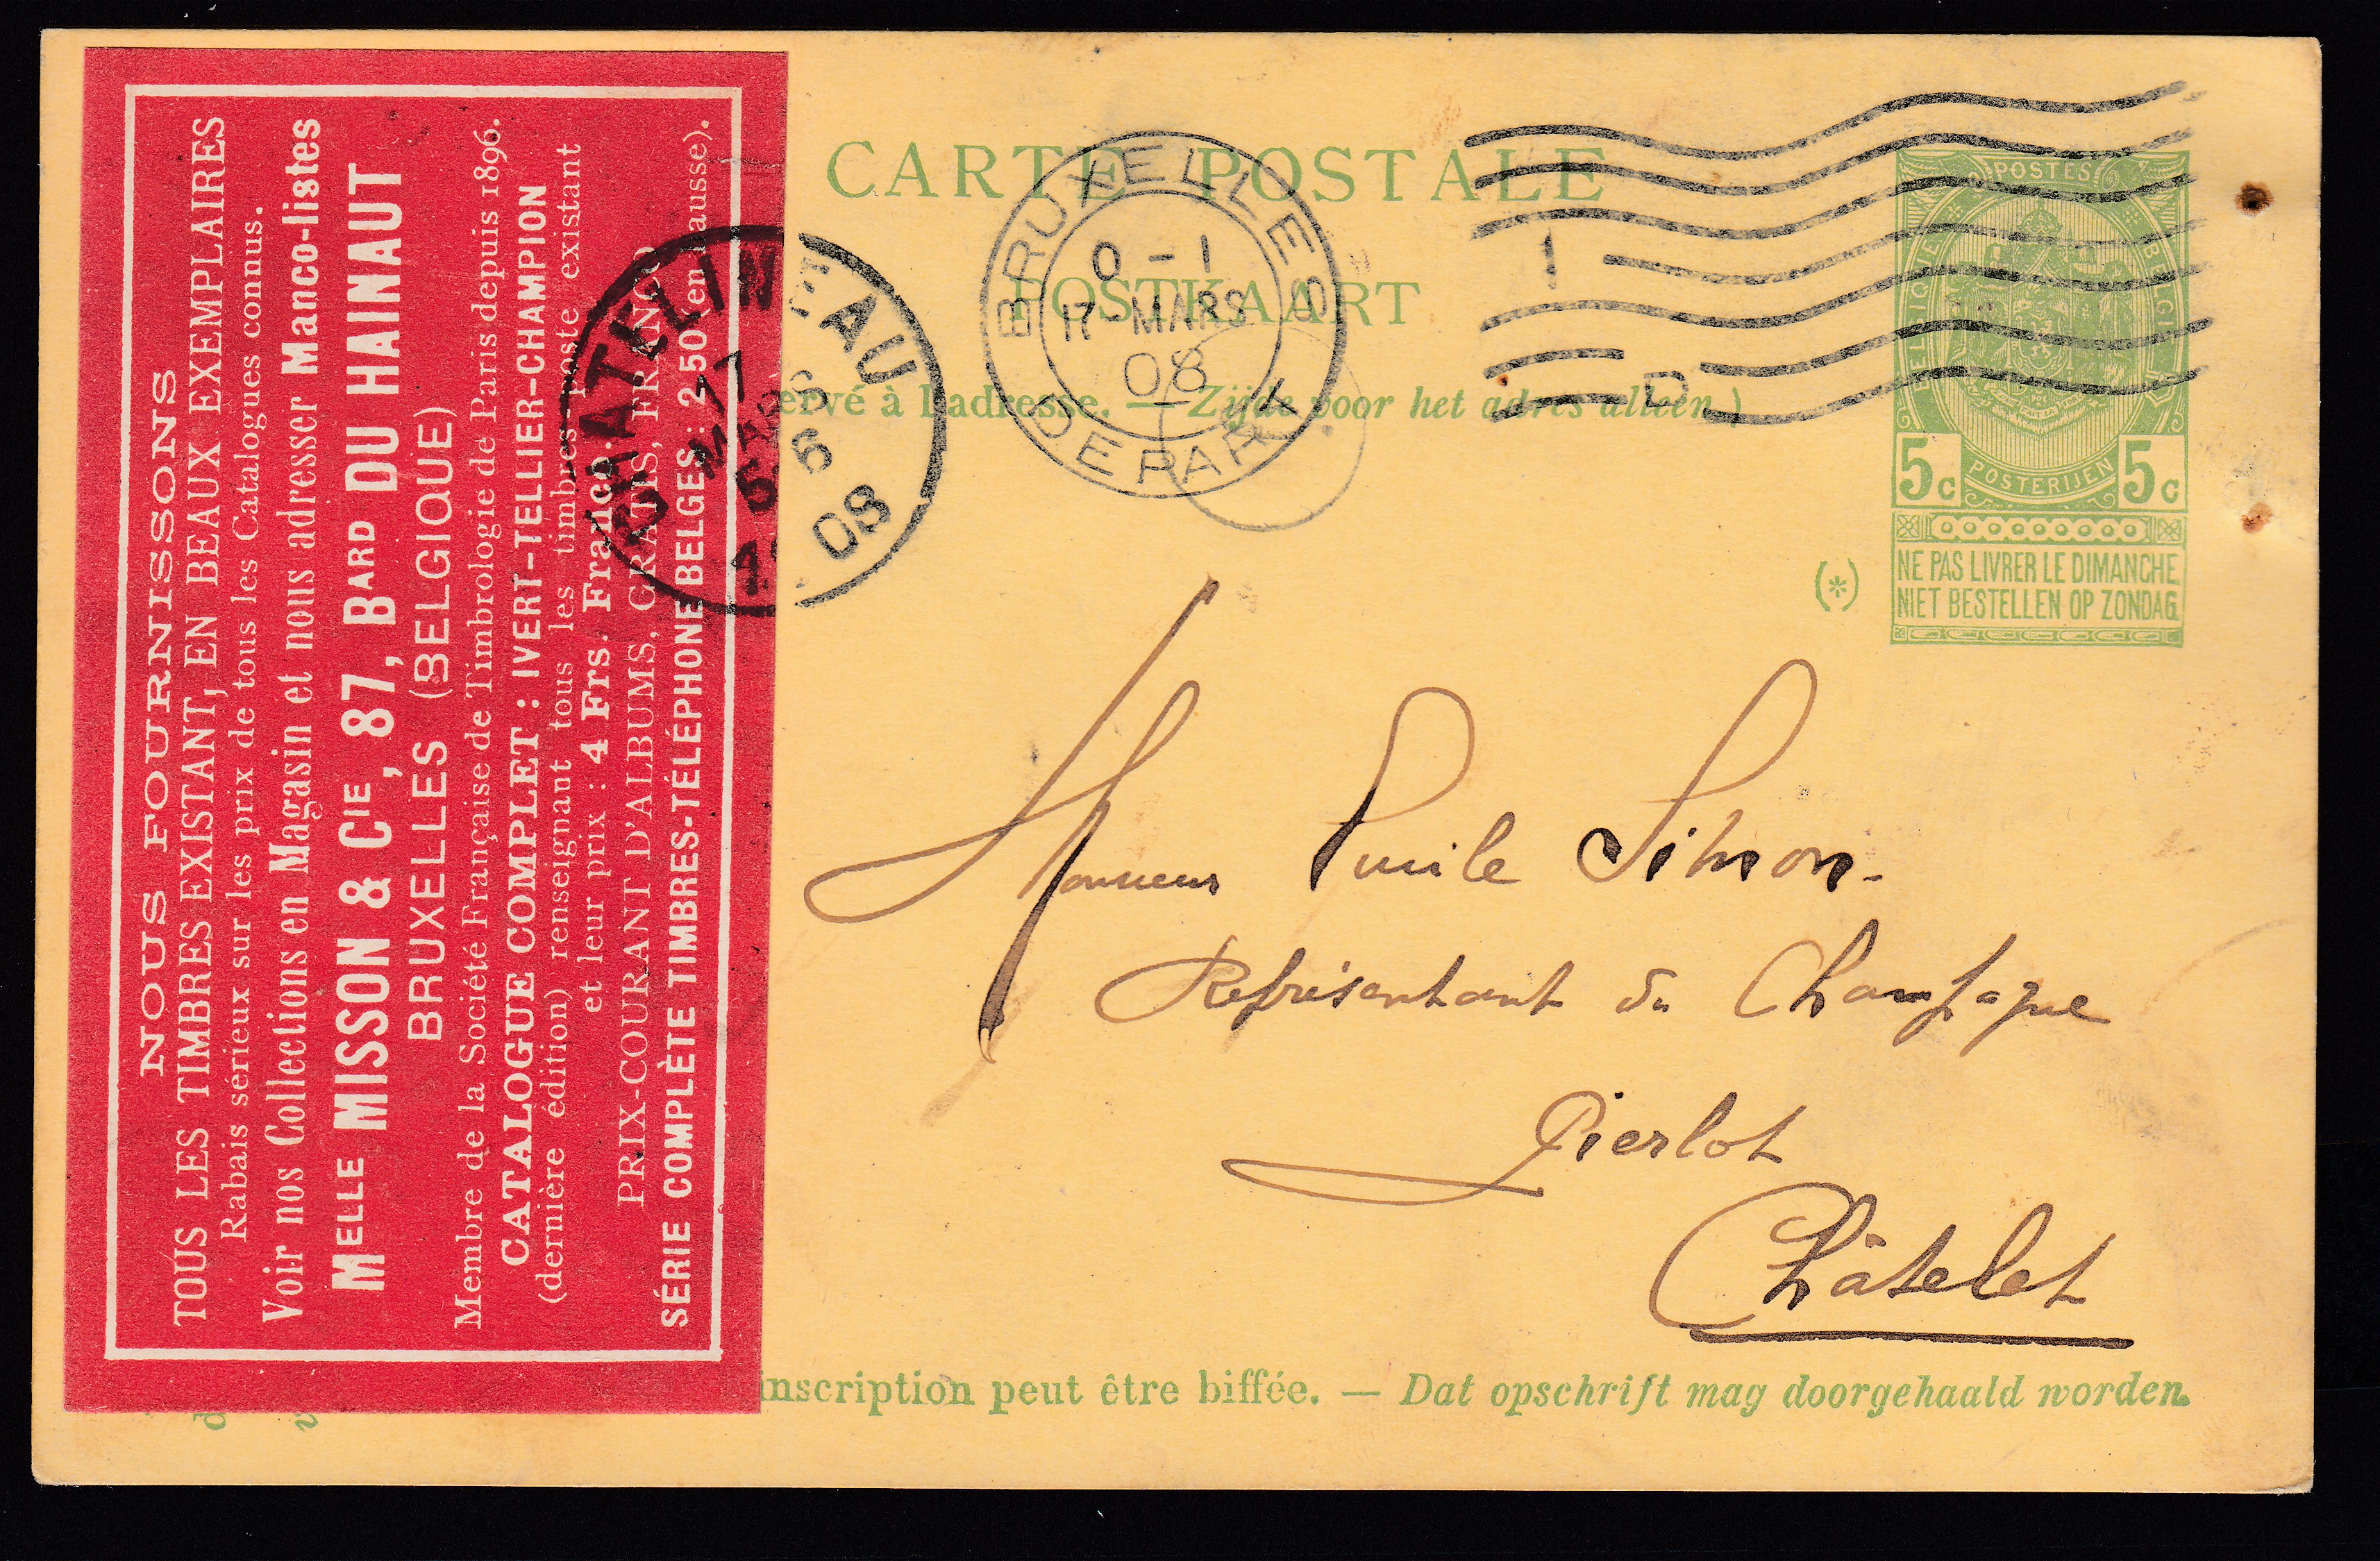 NOUS FOURNISSONS
TOUS LES TIMBRES EXISTANT, EN BEAUX EXEMPLAIRES
Rabais sérieux sur les prix de tous les Catalogues connus.
Voir nos Collections en Magasin et nous adresser Manco-listes
MELLE MISSON & CIE, 87, BARD DU HAINAUT
BRUXELLES (BELGIQUE)
Membre de la Société Française de Timbrologie de Paris depuis 1896.
CATALOGUE COMPLET : IVERT-TELLIER-CHAMPION
(dernière édition) renseignant tous les timbres-poste existant
et leur prix : 4 Frs. Franco.
PRIX-COURANT D'ALBUMS, GRATIS, FRANCO
SÉRIE COMPLÈTE TIMBRES-TÉLÉPHONE BELGES : 2.50 (en hausse).
CHATELINEAU
17
MARS
1908
CARTE POSTALE
POSTKAART
ervé à l'adresse. — Zijde voor het adres alleen.)
BRUXELLES
0 - 1
17 - MARS
08
DEPART
1
D
POSTES
BELGIQUE
BELGIË
5c
POSTERIJEN
5c
(*)
NE PAS LIVRER LE DIMANCHE
NIET BESTELLEN OP ZONDAG
Monsieur Emile Simon.
Représentant du Champagne
Pierlot
Châtelet
inscription peut être biffée. — Dat opschrift mag doorgehaald worden.